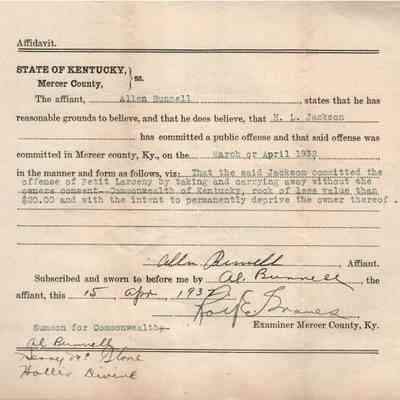 Affidavit.
STATE OF KENTUCKY,
Mercer County, } ss.
The affiant, Allen Bunnell, states that he has
reasonable grounds to believe, and that he does believe, that H. L. Jackson
has committed a public offense and that said offense was
committed in Mercer county, Ky., on the March or April 1932
in the manner and form as follows, viz: That the said Jackson committed the
offense of Petit Larceny by taking and carrying away without the
owners consent Commonwealth of Kentucky, rock of less value than
$20.00 and with the intent to permanently deprive the owner thereof.
Allen Bunnell, Affiant.
Subscribed and sworn to before me by Al. Bunnell, the
affiant, this 15 Apr, 1932
Roy E Graves
Examiner Mercer County, Ky.
Sumson for Commonwealth
Al Bunnell